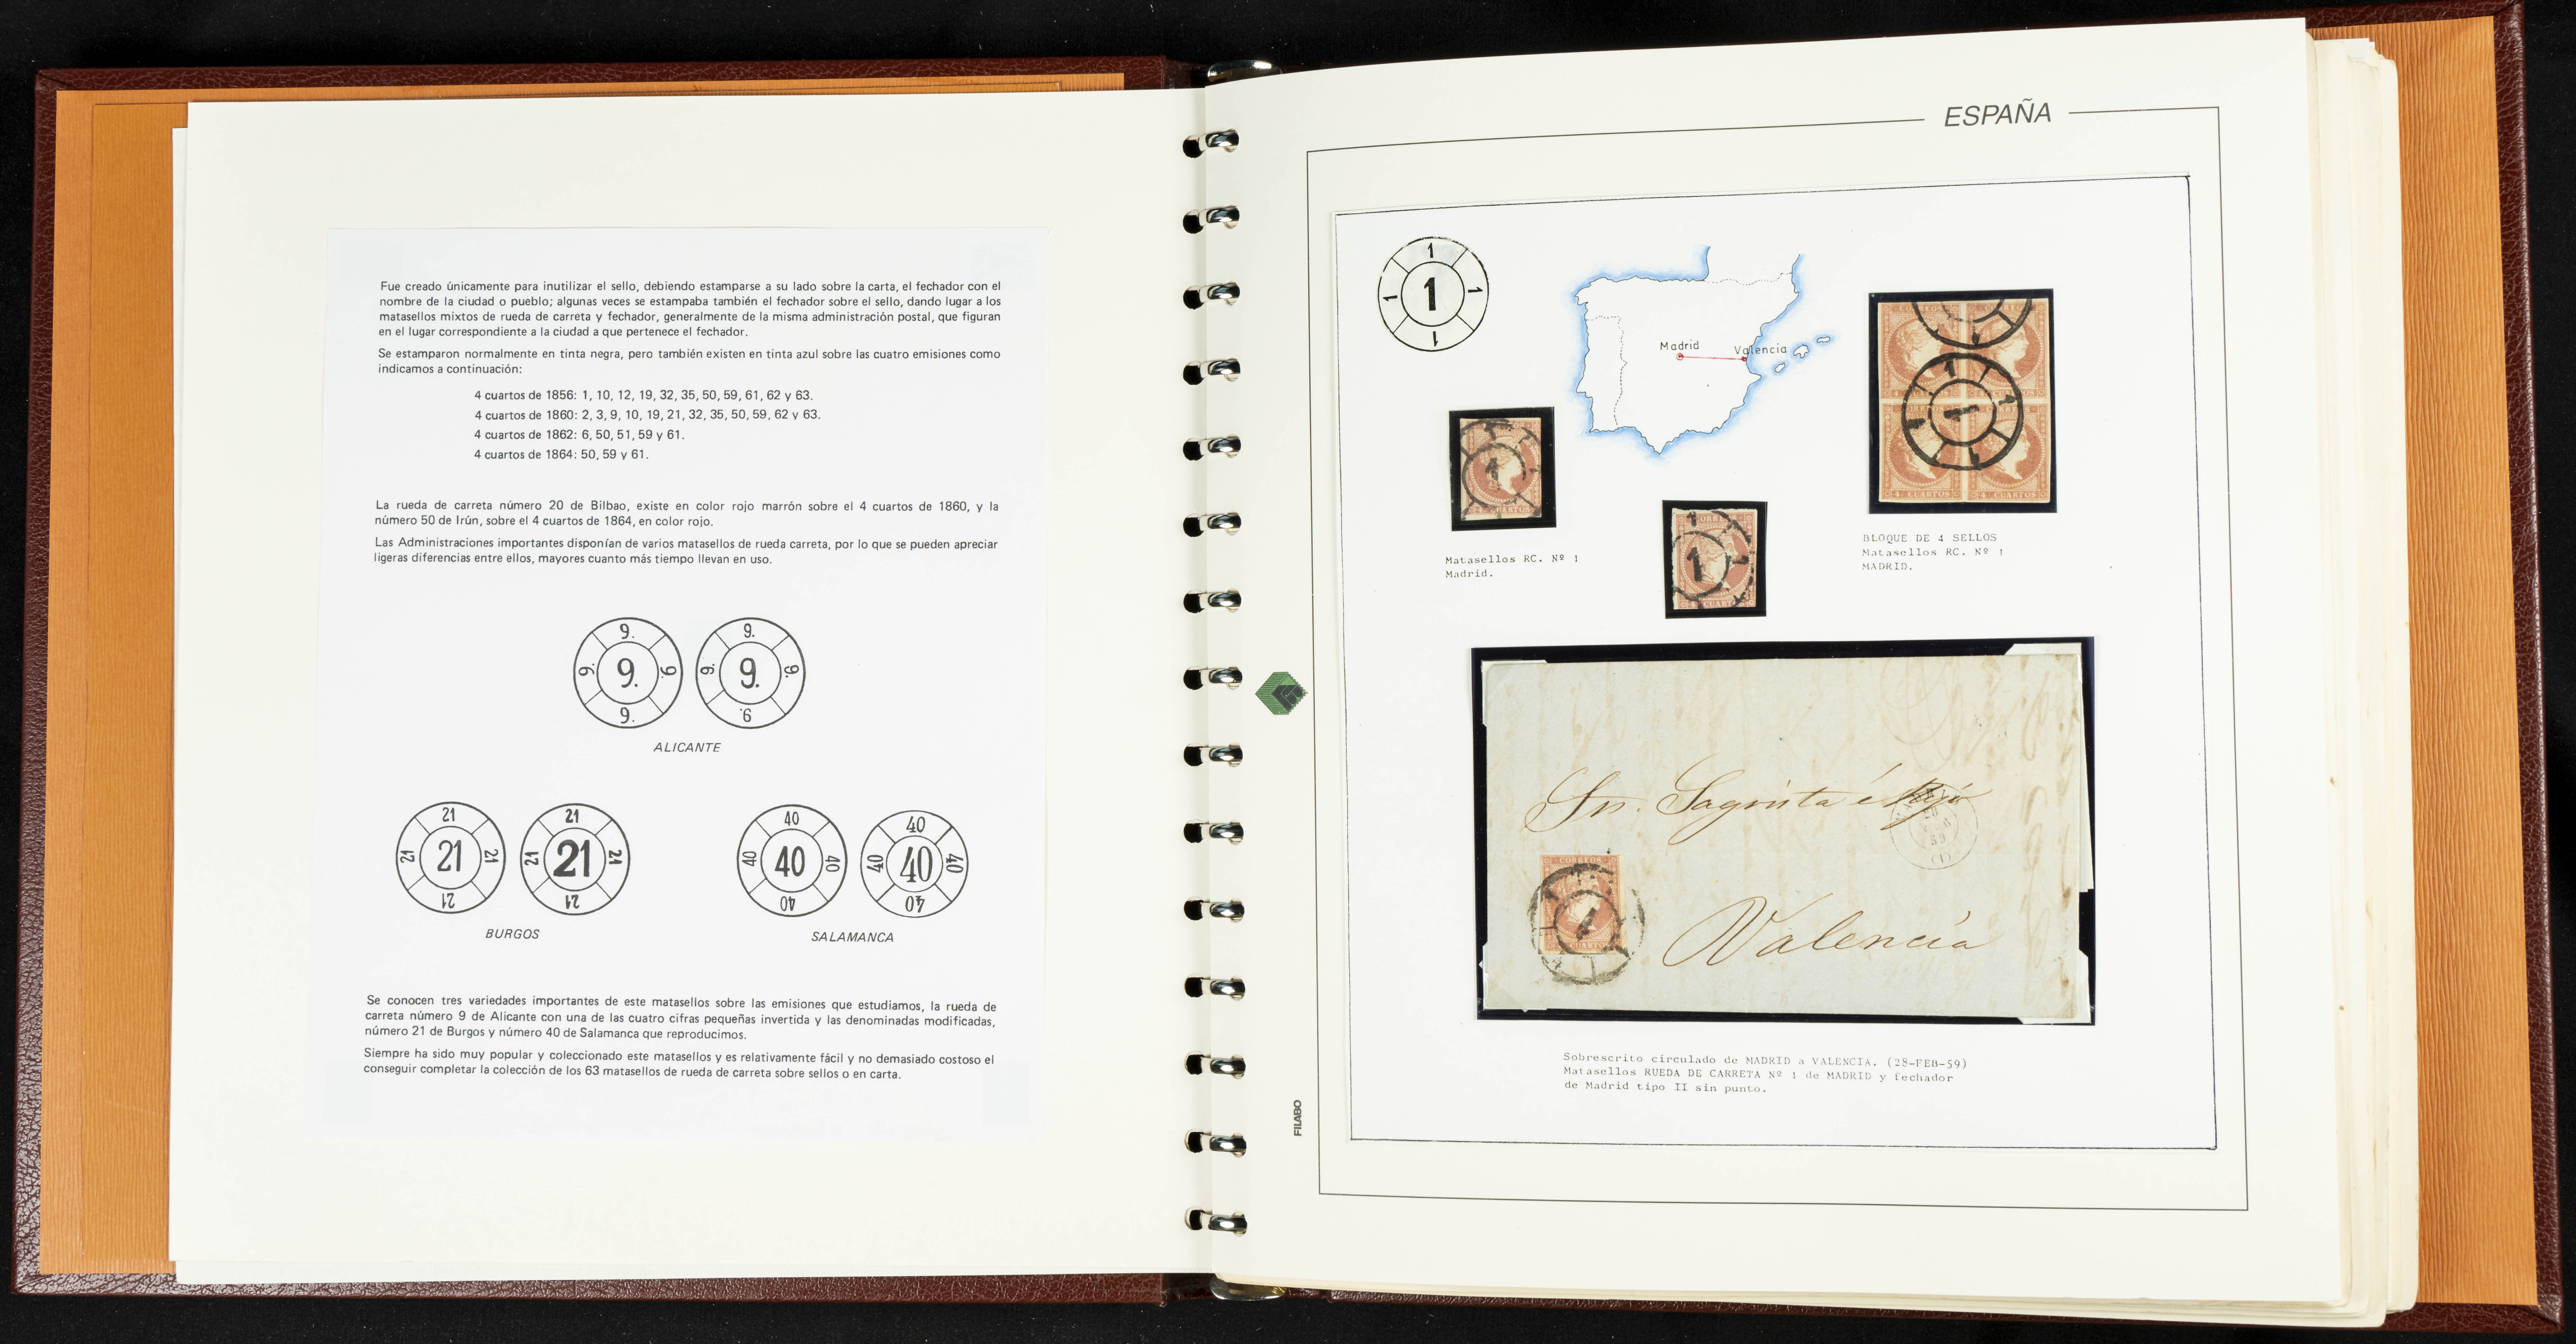 Fue creado únicamente para inutilizar el sello, debiendo estamparse a su lado sobre la carta, el fechador con el
nombre de la ciudad o pueblo; algunas veces se estampaba también el fechador sobre el sello, dando lugar a los
matasellos mixtos de rueda de carreta y fechador, generalmente de la misma administración postal, que figuran
en el lugar correspondiente a la ciudad a que pertenece el fechador.
Se estamparon normalmente en tinta negra, pero también existen en tinta azul sobre las cuatro emisiones como
indicamos a continuación:
4 cuartos de 1856: 1, 10, 12, 19, 32, 35, 50, 59, 61, 62 y 63.
4 cuartos de 1860: 2, 3, 9, 10, 19, 21, 32, 35, 50, 59, 62 y 63.
4 cuartos de 1862: 6, 50, 51, 59 y 61.
4 cuartos de 1864: 50, 59 y 61.
La rueda de carreta número 20 de Bilbao, existe en color rojo marrón sobre el 4 cuartos de 1860, y la
número 50 de Irún, sobre el 4 cuartos de 1864, en color rojo.
Las Administraciones importantes disponían de varios matasellos de rueda carreta, por lo que se pueden apreciar
ligeras diferencias entre ellos, mayores cuanto más tiempo llevan en uso.
9. 9. 9. 9. 9.
9. 9. 9. 9. 9.
ALICANTE
21 21 21 21 21
21 21 21 21 21
BURGOS
40 40 40 40 40
40 40 40 40 40
SALAMANCA
Se conocen tres variedades importantes de este matasellos sobre las emisiones que estudiamos, la rueda de
carreta número 9 de Alicante con una de las cuatro cifras pequeñas invertida y las denominadas modificadas,
número 21 de Burgos y número 40 de Salamanca que reproducimos.
Siempre ha sido muy popular y coleccionado este matasellos y es relativamente fácil y no demasiado costoso el
conseguir completar la colección de los 63 matasellos de rueda de carreta sobre sellos o en carta.
ESPAÑA
1 1 1 1 1
Madrid
Valencia
Matasellos RC. Nº 1
Madrid.
1
4 CUARTOS
4 CUARTOS
BLOQUE DE 4 SELLOS
Matasellos RC. Nº 1
MADRID.
CORREOS
1
Valencia
Sobrescrito circulado de MADRID a VALENCIA. (28-FEB-59)
Matasellos RUEDA DE CARRETA Nº 1 de MADRID y fechador
de Madrid tipo II sin punto.
FILABO